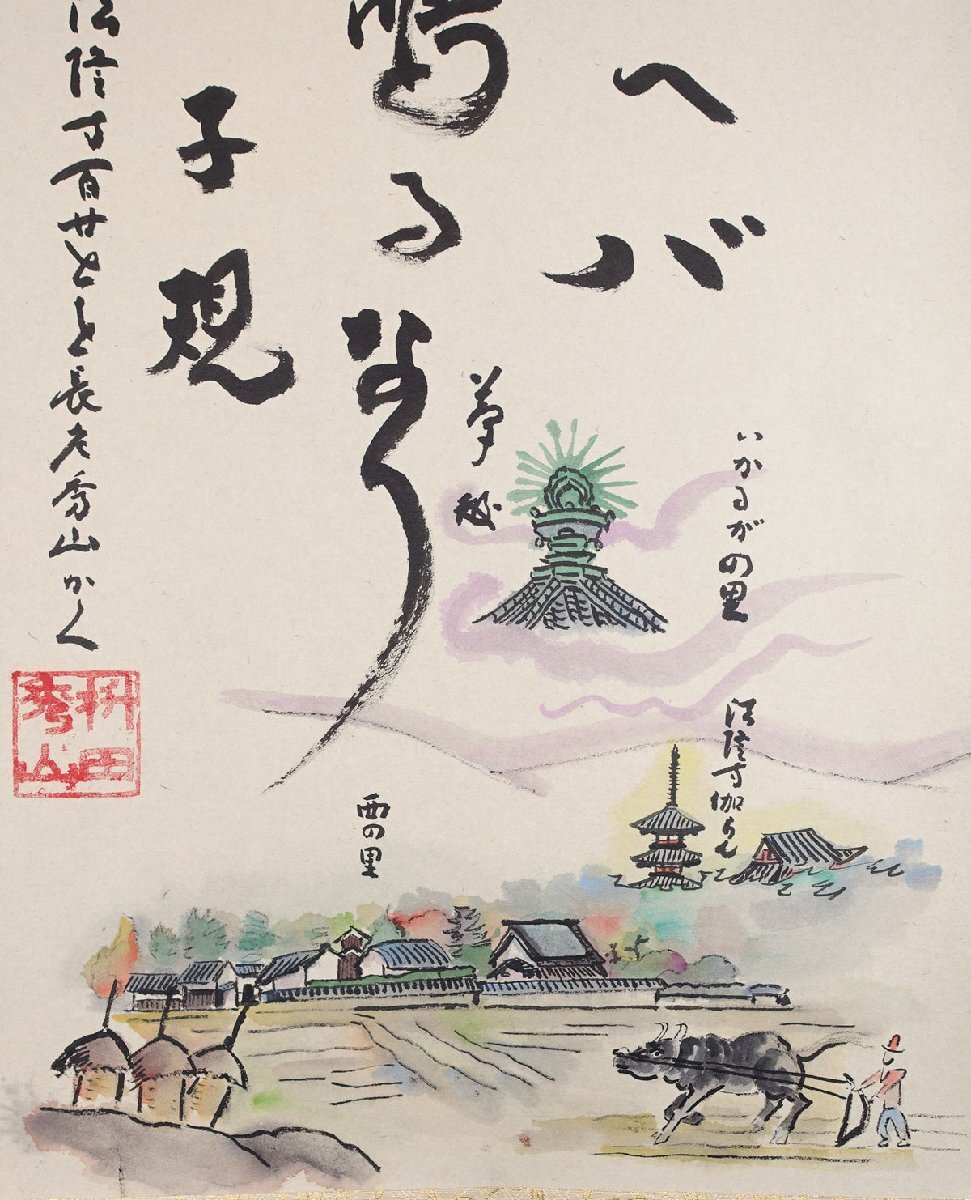 へバ
鳴るなり
子規
法隆寺百廿 長老秀山かく
いかるがの里
夢殿
法隆寺伽らん
西の里
枡田
秀山